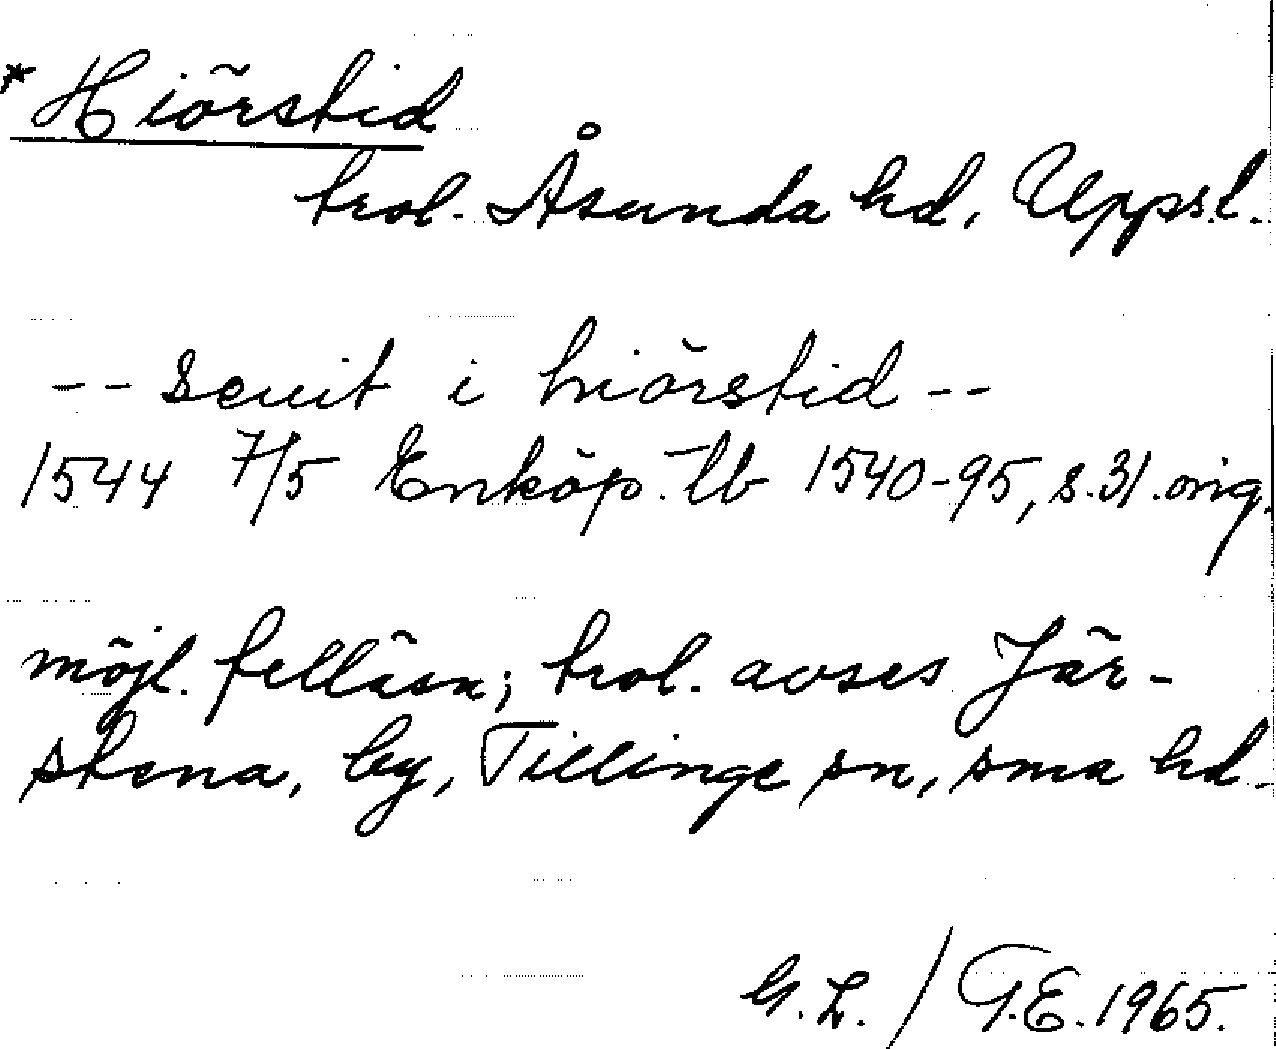 * Hiörstid
trol. Åsunda hd, Uppsl.
-- scuit i hiörstid --
1544 7/5 Enköp. tb 1540-95, s. 31. orig.
möjl. felläsn; trol. avses Jär-
stena, by, Tillinge sn, sma hd.
G. L. / G.E. 1965.